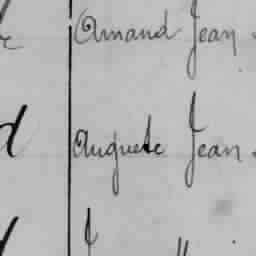 Amand Jean
Auguste Jean